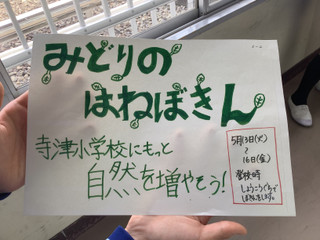 みどりの
はねぼきん
寺津小学校にもっと
自然を増やそう!
5月13日(火)
～
16日(金)
登校時
しょうこうぐちで